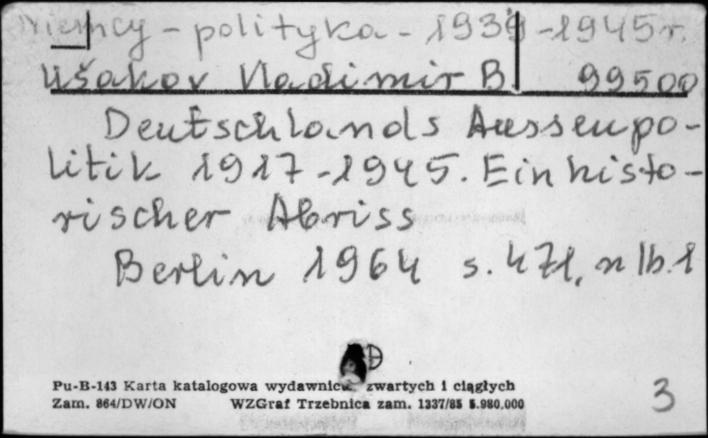 Niemcy - polityka - 1939 - 1945 r.
Ušakov Vladimir B. 99500
Deutschlands Aussenpo-
litik 1917 - 1945. Ein histo-
rischer Abriss
Berlin 1964 s. 471, nlb. 1
Pu-B-143 Karta katalogowa wydawnictw zwartych i ciągłych
Zam. 864/DW/ON WZGraf Trzebnica zam. 1337/85 5.980.000
3